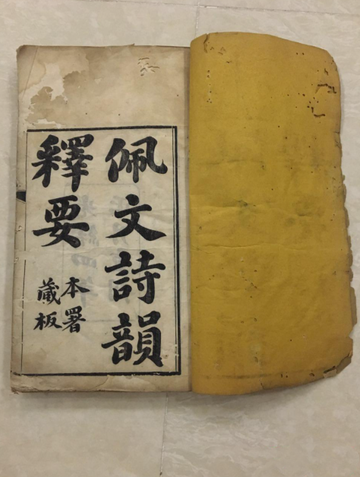 佩文詩韻
釋要
本署
藏板